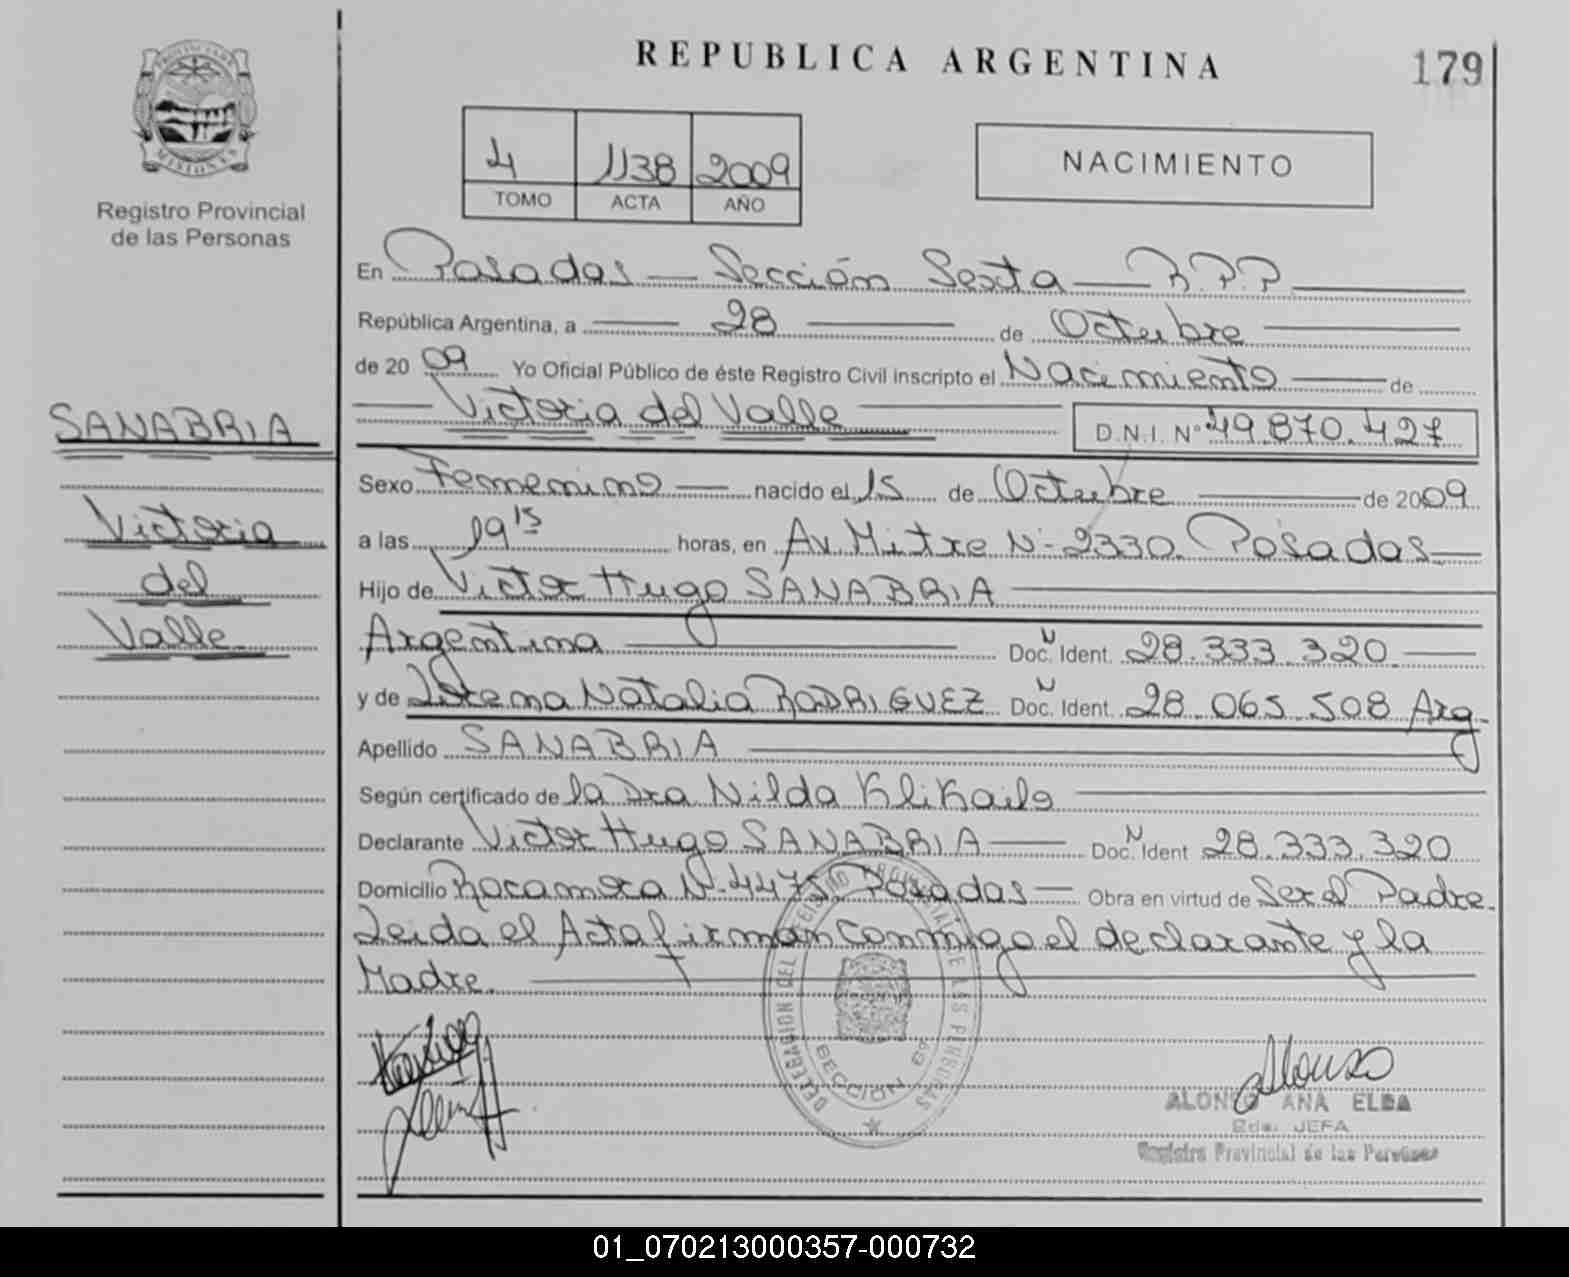 REPUBLICA ARGENTINA
179
PROVINCIA DE MISIONES
Registro Provincial
de las Personas
4 1138 2009
TOMO ACTA AÑO
NACIMIENTO
En Posadas — Sección Sexta — R.P.P.
República Argentina, a — 28 — de Octubre
de 2009 Yo Oficial Público de éste Registro Civil inscripto el Nacimiento — de
Victoria del Valle
D.N.I. Nº 49.870.427
SANABRIA
Victoria
del
Valle
Sexo Femenino — nacido el 15 de Octubre — de 2009
a las 19 15 horas, en Av. Mitre Nº 2330. Posadas—
Hijo de Victor Hugo SANABRIA
Argentina — Doc. Ident. 28.333.320 —
y de Natalia RODRIGUEZ Doc. Ident. 28.065.508 Arg.
Apellido SANABRIA
Según certificado de la Dra Nilda KliKailo
Declarante Victor Hugo SANABRIA — Doc. Ident 28.333.320
Domicilio Rocamora Nº 4475 Posadas — Obra en virtud de Ser el Padre.
Leida el Acta firman conmigo el declarante y la
Madre.
DELEGACION DEL REGISTRO PROVINCIAL DE LAS PERSONAS
SECCION 6º
Alonso
ALONSO ANA ELBA
JEFA
Registro Provincial de las Personas
01_070213000357-000732